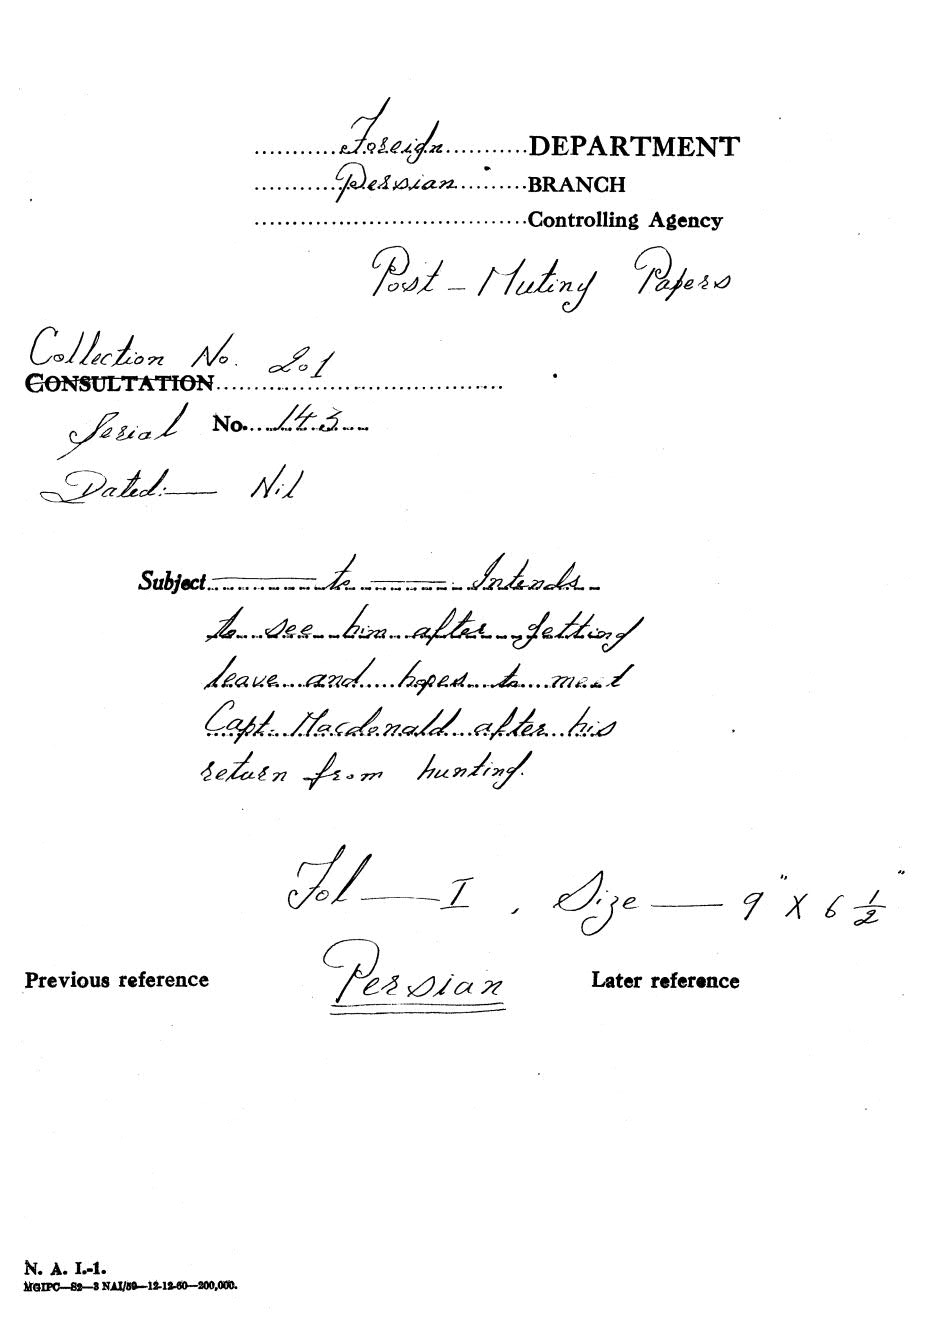 Foreign DEPARTMENT
Persian BRANCH
Controlling Agency
Post-Mutiny Papers
Collection No. 201
CONSULTATION
Serial No. 143
Dated:— Nil
Subject —— to —— Intends
to see him after getting
leave and hopes to meet
Capt. Macdonald after his
return from hunting.
Fol — I, Size — 9" X 6 1/2"
Previous reference Persian Later reference
N. A. I.-1.
MGIPC—S2—3 NAI/59—12-12-60—200,000.